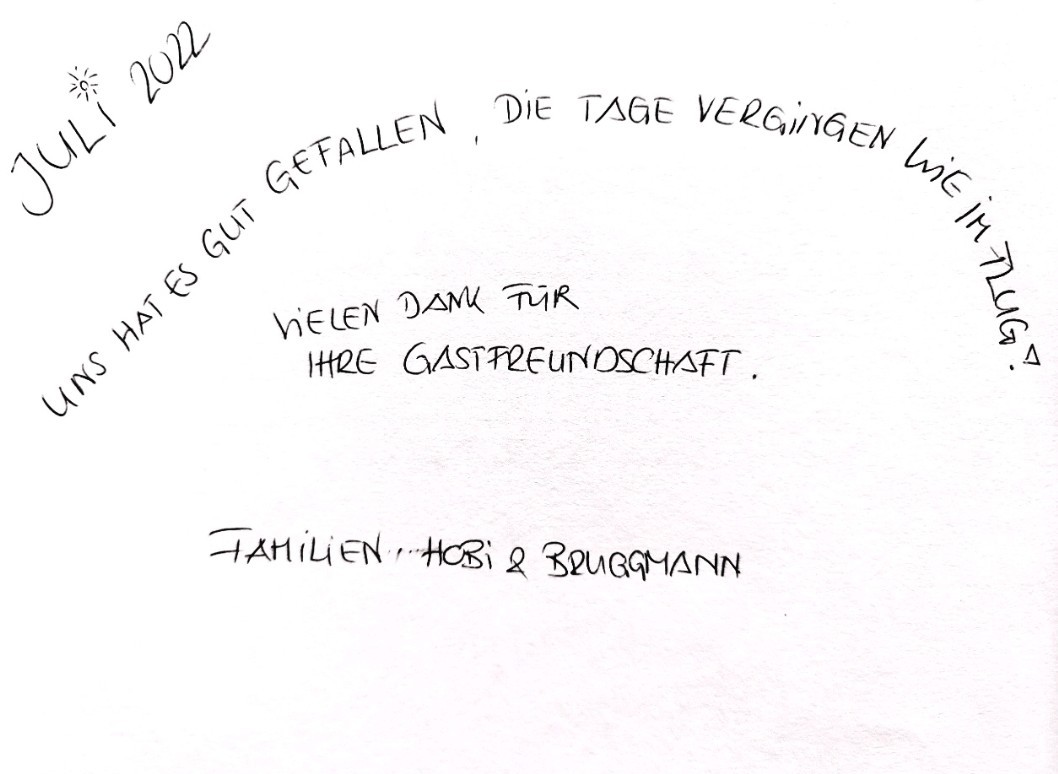 JULI 2022
UNS HAT ES GUT GEFALLEN, DIE TAGE VERGINGEN WIE IM FLUG!
VIELEN DANK FÜR
IHRE GASTFREUNDSCHAFT.
FAMILIEN... HOBI & BRUGGMANN